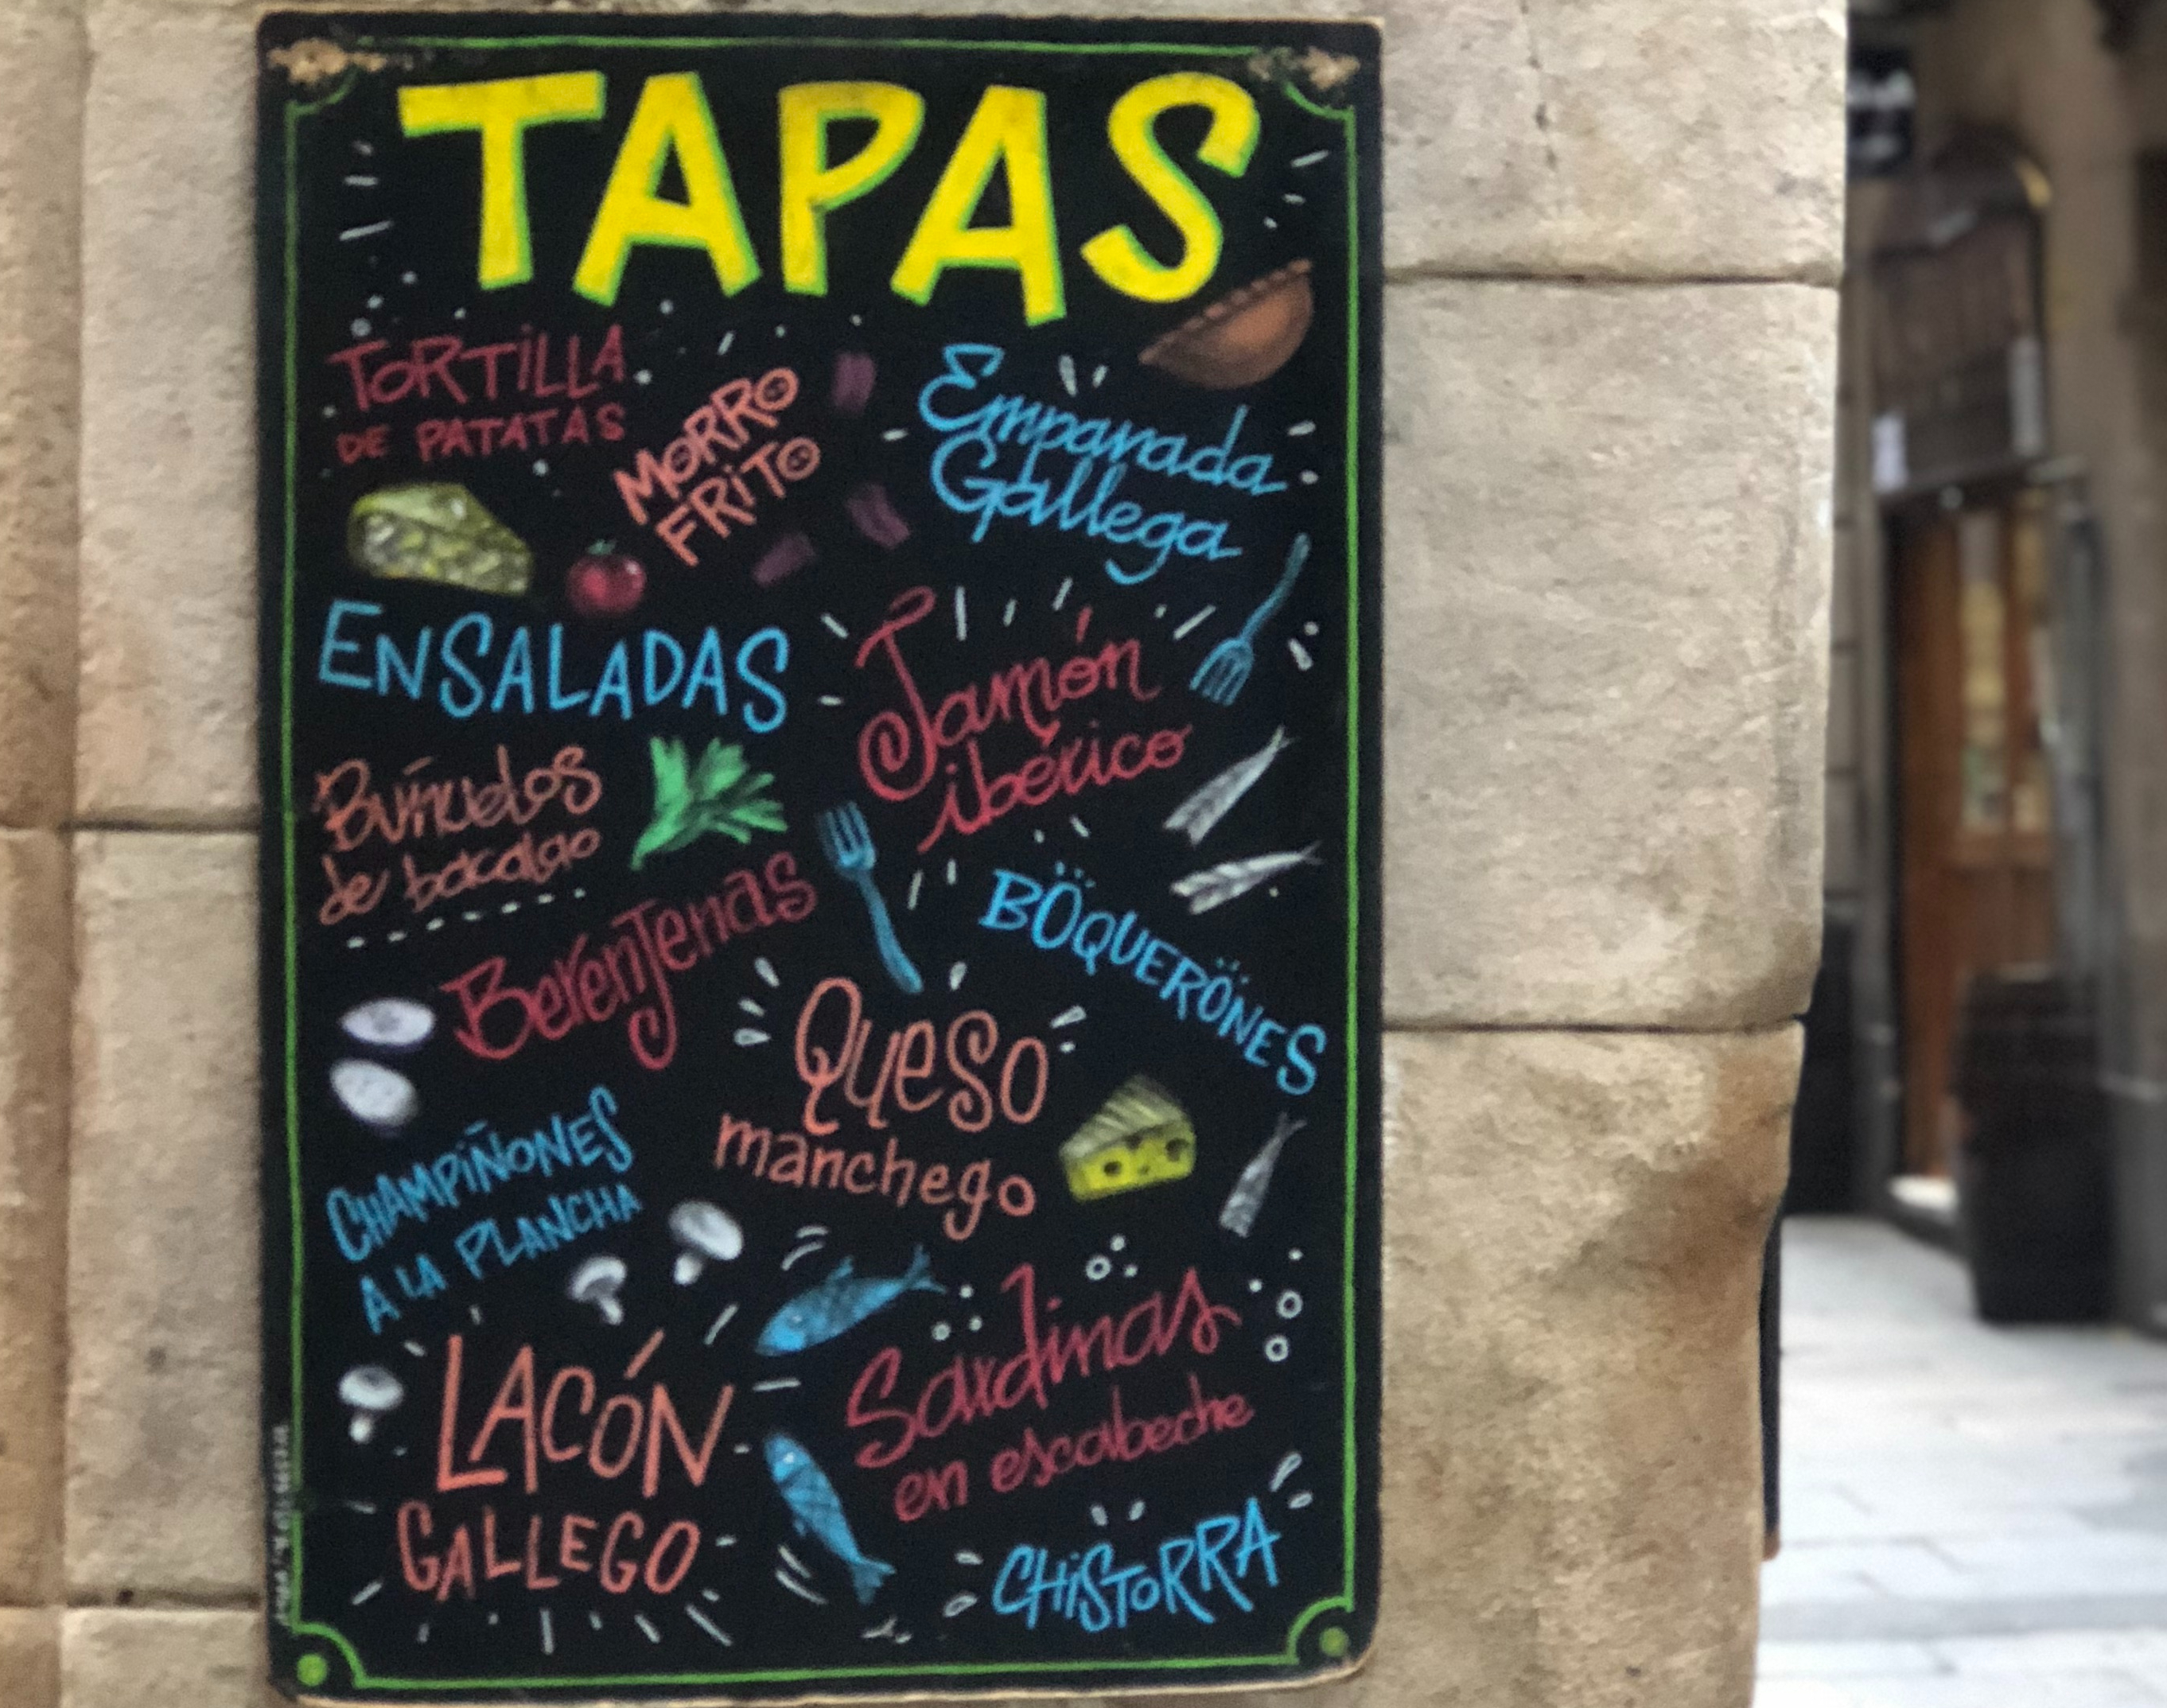 TAPAS
TORTILLA
DE PATATAS
MORRO
FRITO
Empanada
Gallega
ENSALADAS
Jamón
ibérico
Buñuelos
de bacalao
Berenjenas
BOQUERONES
QUESO
manchego
CHAMPIÑONES
A LA PLANCHA
LACÓN
GALLEGO
Sardinas
en escabeche
CHISTORRA